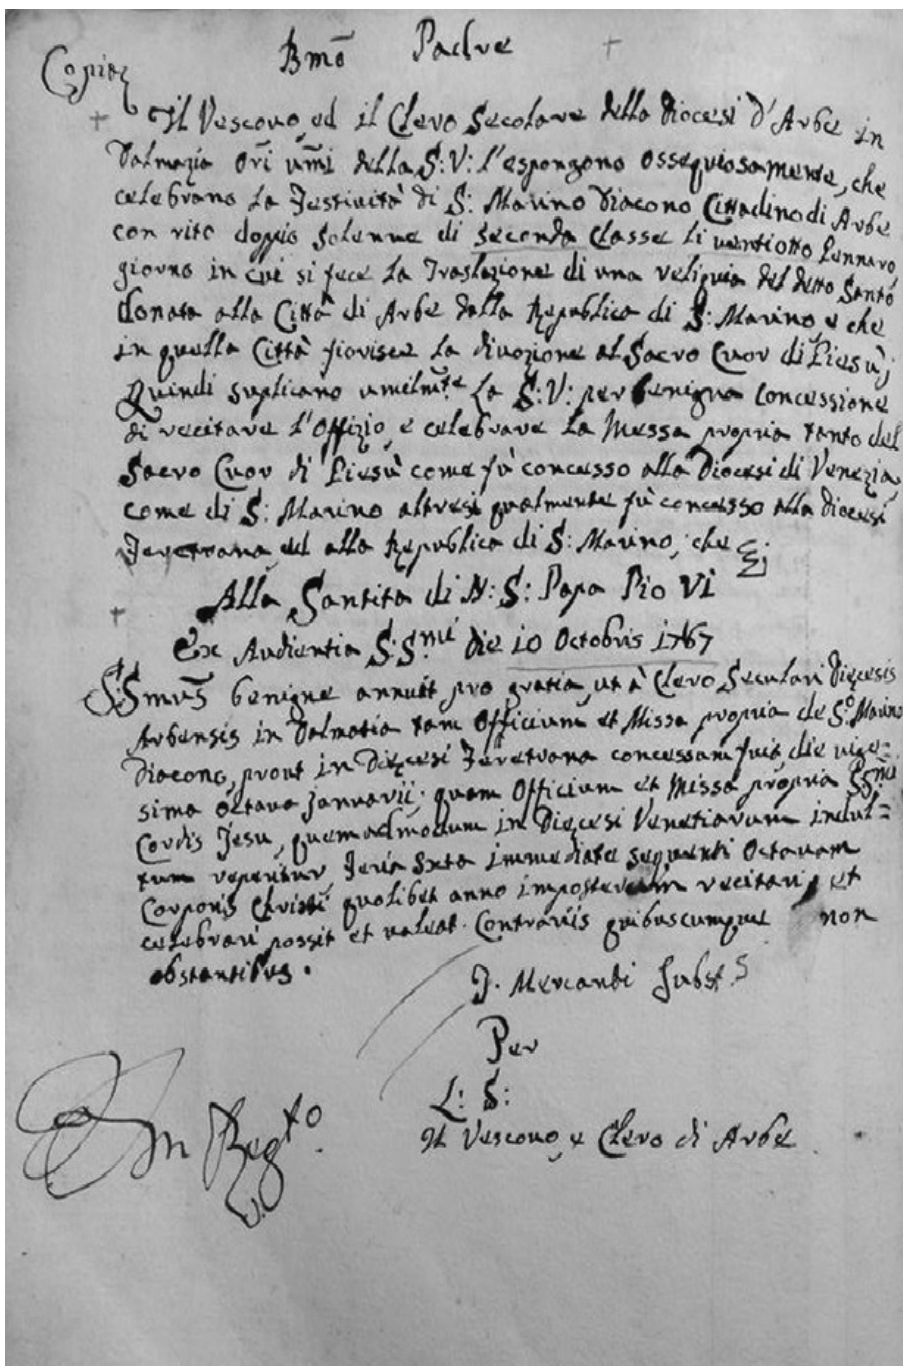 Copia
Bmõ Padre
Il Vescovo, ed il Clero Secolare della Diocesi d'Arbe in
Dalmazia Ori umi della S: V: l'espongono ossequiosamente, che
celebrano la Festività di S: Marino Diacono Cittadino di Arbe
con rito doppio solenne di seconda Classe li ventiotto Gennaro,
giorno in cui si fece la Traslazione di una reliquia del detto Santo
donata alla Città di Arbe dalla Republica di S: Marino, e che
in quella Città fiorisce la divozione al Sacro Cuor di Giesù;
Quindi suplicano umilmte la S: V: per benigna concessione
di recitare l'Offizio, e celebrare la Messa propria tanto del
Sacro Cuor di Giesù come fù concesso alla Diocesi di Venezia,
come di S: Marino altresi qualmente fù concesso alla diocesi
Feretrana, ed alla Republica di S: Marino, che
Alla Santita di N: S: Papa Pio VI
Ex Audientia S:Smi die 10 Octobris 1767
SSmus benigne annuit pro gratia, ut à Clero Seculari Dięcesis
Arbensis in Dalmatia tam Officium et Missa propria de So. Marino
Diacono, prout in Dięcesi Feretrana concessam fuit, die vige=
sima octava Januarii; quam Officium et Missa propria SSmi
Cordis Jesu, quemadmodum in Dięcesi Venetiarum indul=
tum reperitur Feria Sxta immediate sequenti Octavam
Corporis Christi quolibet anno imposterum recitari, et
celebrari possit et valeat. Contrariis quibuscumque non
obstantibus.
J. Mercandi Subst.s
Per
L: S:
Il Vescovo, e Clero di Arbe
In Regto.